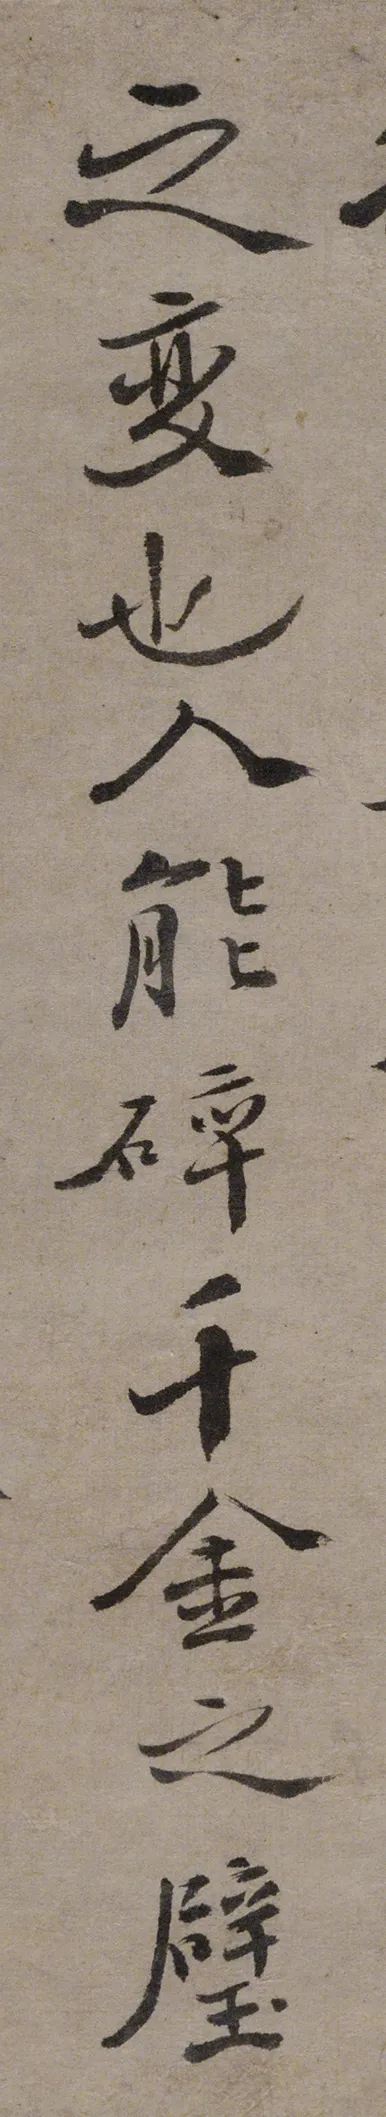 之変也人能碎千金之璧